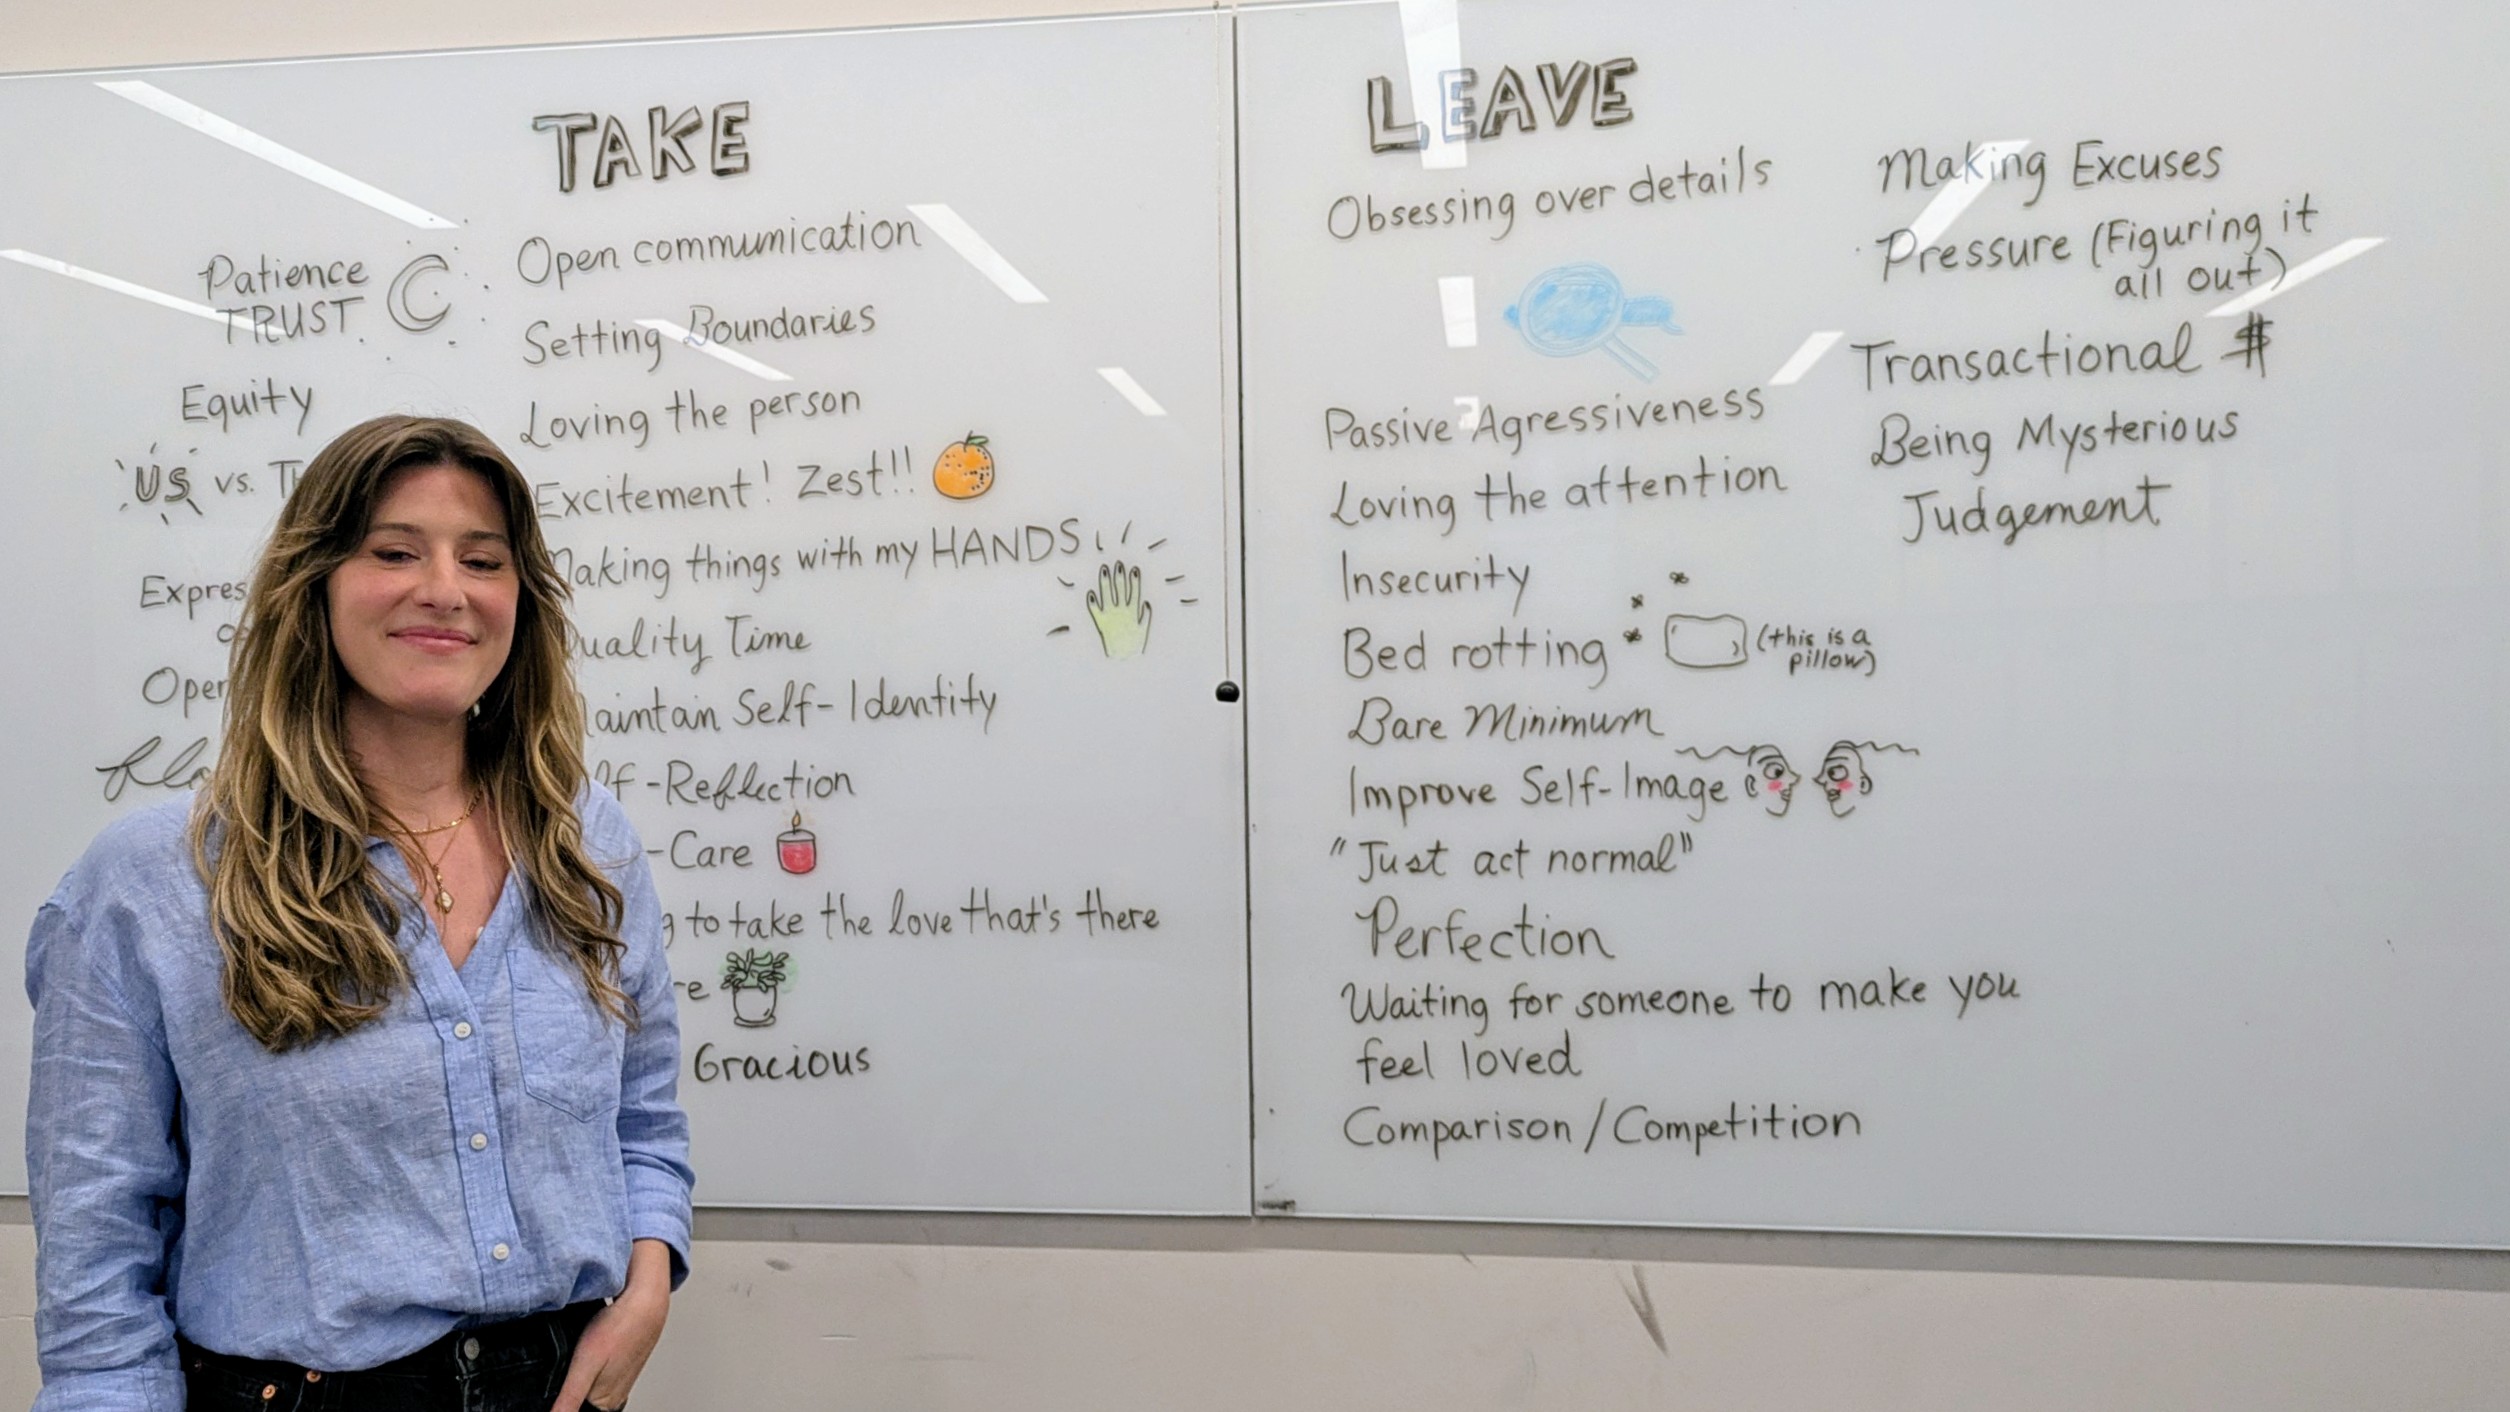 TAKE
Patience
TRUST
Equity
US vs.
Open communication
Setting Boundaries
Loving the person
Excitement! Zest!!
things with my HANDS
Time
Self-Identity
-Reflection
-Care
to take the love that's there
Gracious
LEAVE
Obsessing over details
Passive Agressiveness
Loving the attention
Insecurity
Bed rotting (this is a
pillow)
Bare Minimum
Improve Self-Image
"Just act normal"
Perfection
Waiting for someone to make you
feel loved
Comparison/Competition
Making Excuses
Pressure (Figuring it
all out)
Transactional $
Being Mysterious
Judgement